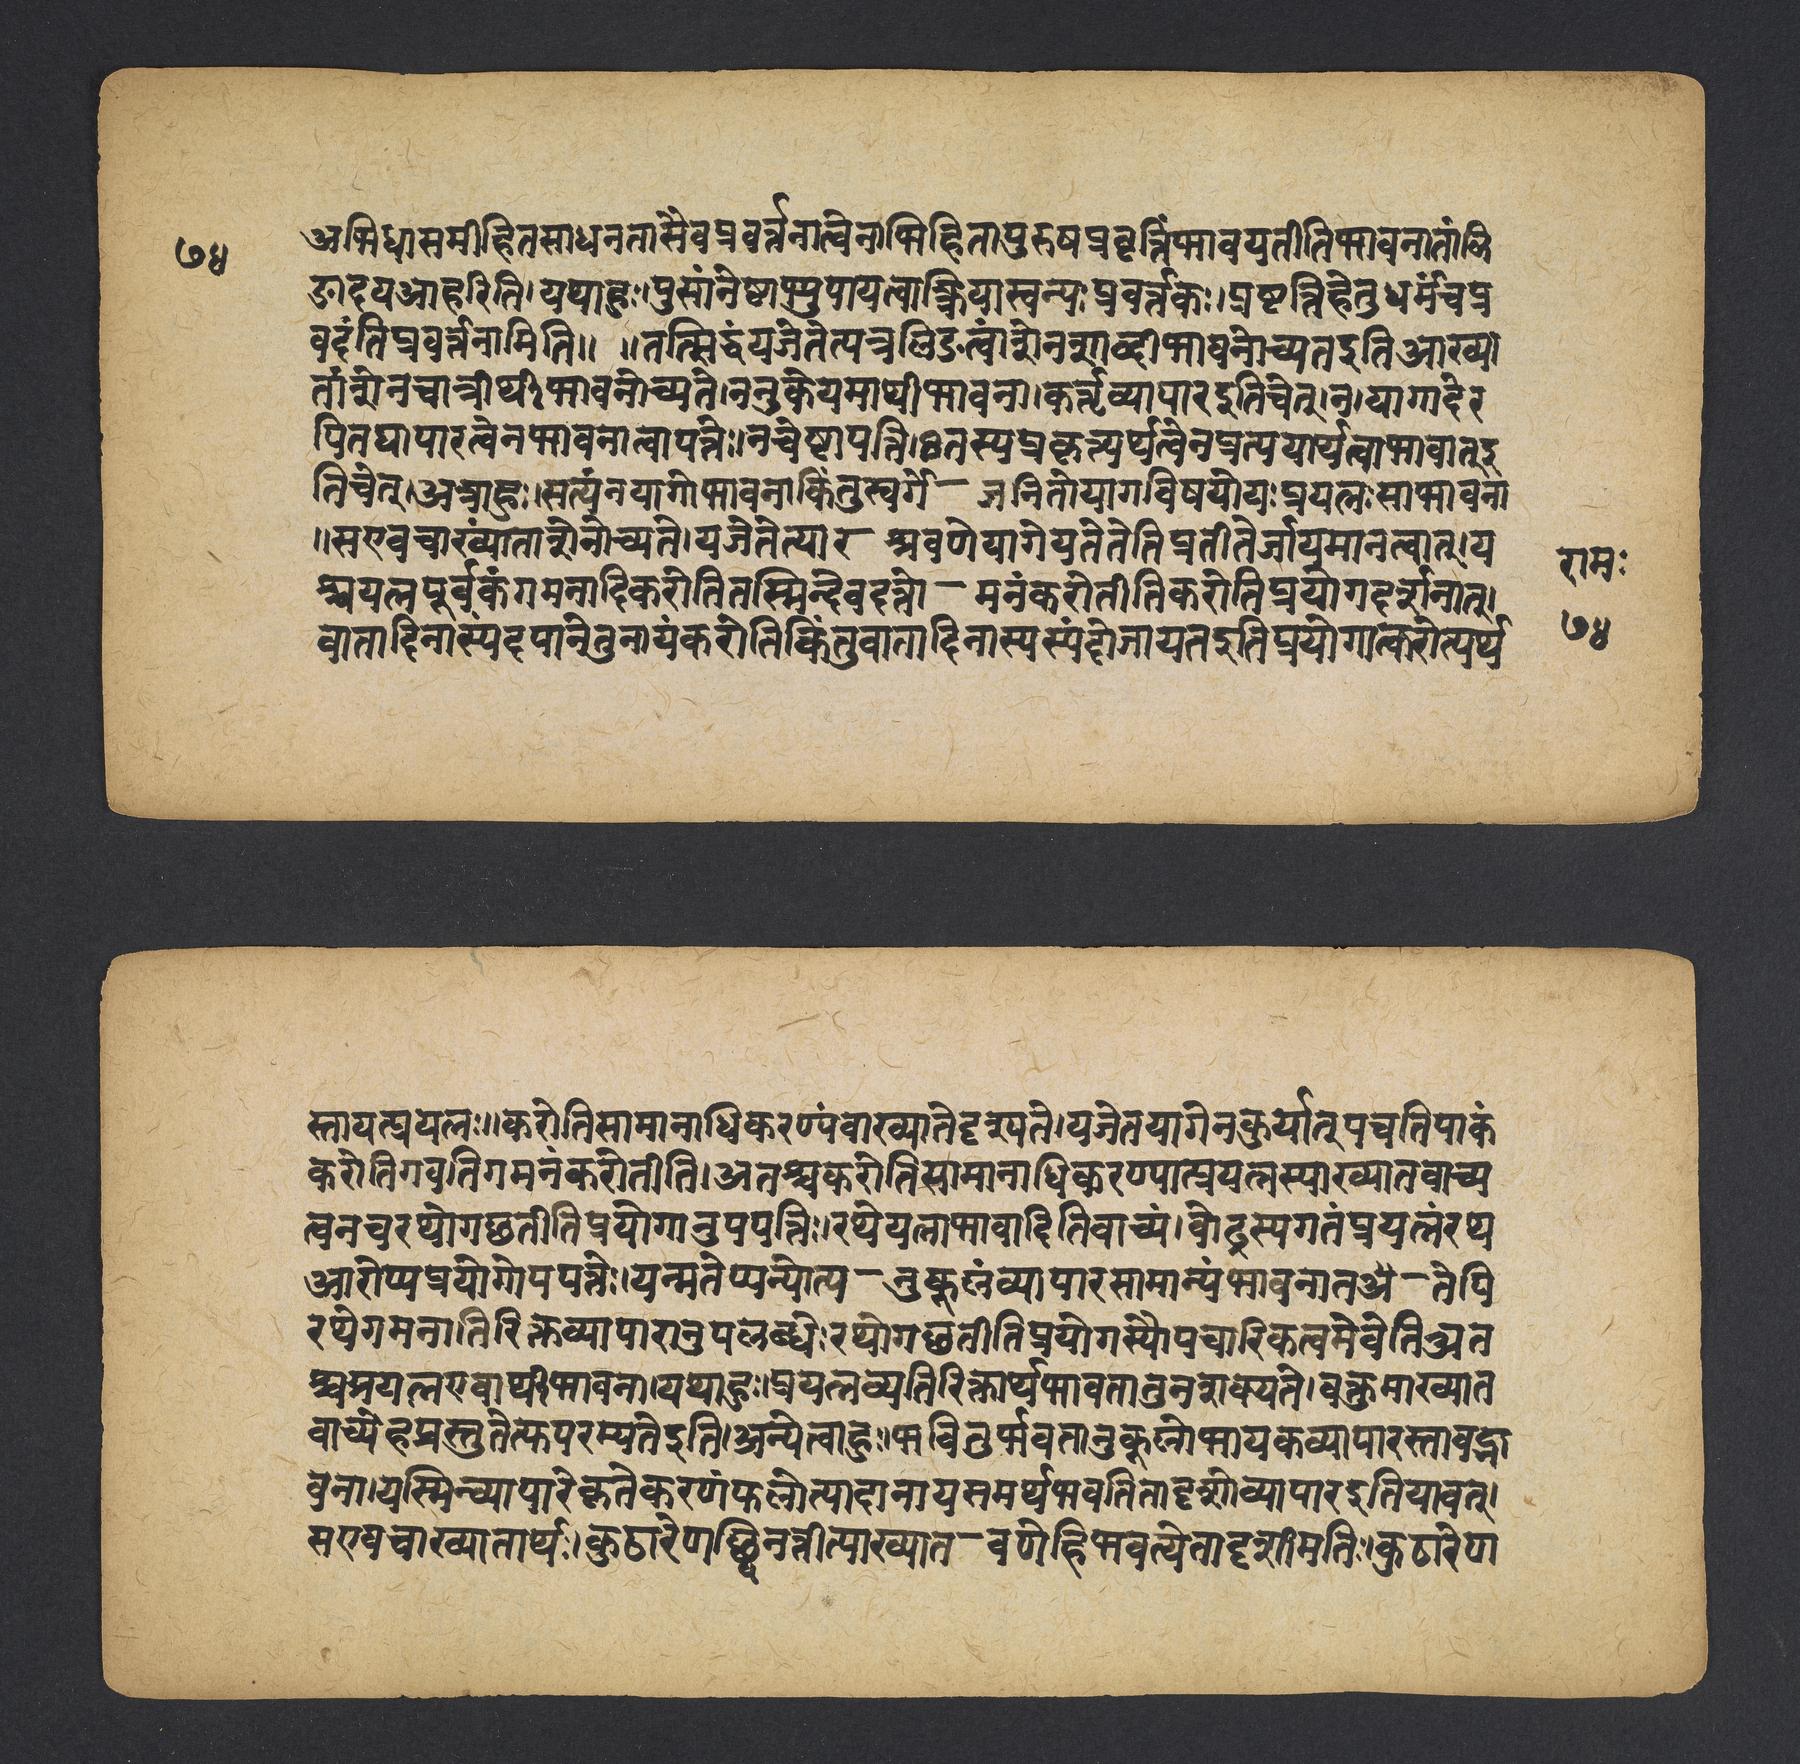 ७४
अभिधासमीहितसाधनतासैवप्रवर्त्तनात्वेनाभिहितापुरुषप्रवृत्तिंभावयतीतिभावनातांलि
ङादयआहुरिति।यथाहुः।पुसांनेष्टाभ्युपायत्वाक्रियास्वन्यःप्रवर्त्तकः।प्रवृत्तिहेतुधर्मंचप्र
वदंतिप्रवर्त्तनामिति॥ ॥तत्सिद्धंयजेतेत्यत्रलिङत्वांशेनशाब्दीभावनोच्यतइतिआख्या
तांशेनचार्त्थीभावनोच्यते।ननुकेयमार्थीभावना।कर्त्तृव्यापारइतिचेत्।न।यागादेर
पितद्यापारत्वेनभावनात्वापत्तेः।नचेष्टापत्ति।तस्यप्रकृत्यर्थत्वेनप्रत्ययार्थत्वाभावात्इ
तिचेत्।अत्राहुः।सत्यंनयागोभावनाकिंतुस्वर्गे– जनितोयागविषयोयःप्रयत्नःसाभावना
॥सएवचाख्यातांशेनोच्यते।यजेतेत्यार– श्रवणेयागेयतेतेतिप्रतीतेर्जायमानत्वात्।य
श्चयत्नपूर्वकंगमनादिकरोतितस्मिन्देवदत्तो– मनंकरोतीतिकरोतिप्रयोगदर्शनात्।
वातादिनास्यंदपानेतुनायंकरोतिकिंतुवातादिनास्यस्यंदोजायतइतिप्रयोगात्करोत्यर्थ
रामः
७४
स्तायत्प्रयत्नः॥करोतिसामानाधिकरण्यंवाख्यातेदृश्यते।यजेतयागेनकुर्यात्पचतिपाकं
करोतिगवतिगमनंकरोतीति।अतश्चकरोतिसामानाधिकरण्यात्प्रयत्नस्याख्यातवाच्य
त्वनचरथोगछतीतिप्रयोगानुपपत्तिः।रथेयत्नाभावादितिवाच्यं।वोढृस्यगतंप्रयत्नंरथ
आरोप्यप्रयोगोपपत्तेः।यन्मतेप्यन्योत्प–नुकूलंव्यापारसामान्यंभावनातन्म–तेपि
रथेगमनातिरिक्तव्यापारानुपलब्धेःरथोगछतीतिप्रयोगस्यौपचारिकत्वमेवेतिअत
श्चप्रयत्नएवार्थीभावना।यथाहुः।प्रयत्नव्यतिरिक्तार्थभावतातुनशक्यते।वक्तुमाख्यात
वाच्येहप्रस्तुतेत्फपरम्यतेइति।अन्येत्वाहुः।भवितुर्भवतानुकूलोभायकव्यापारस्तावद्भा
वना।यस्मिन्व्यापारेकृतेकरणंफलोत्पादानायसमर्थभवतितादृशोव्यापारइतियावत्।
सएषचाख्यातार्थः।कुठारेणछिनत्तीत्याख्यात–वणेहिभवत्येतादृशीमतिः।कुठारेणा